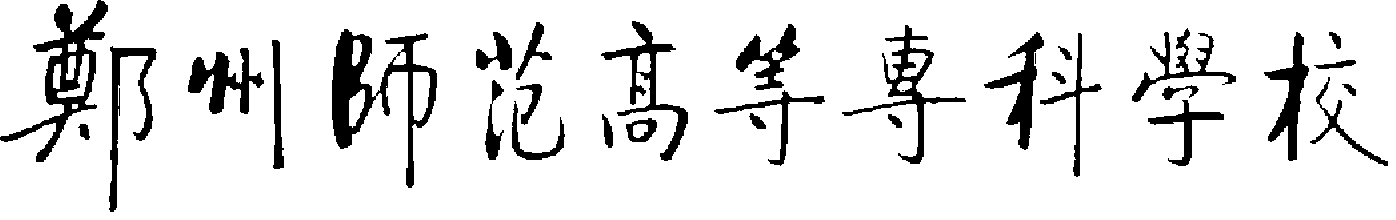 鄭州師范髙等專科學校